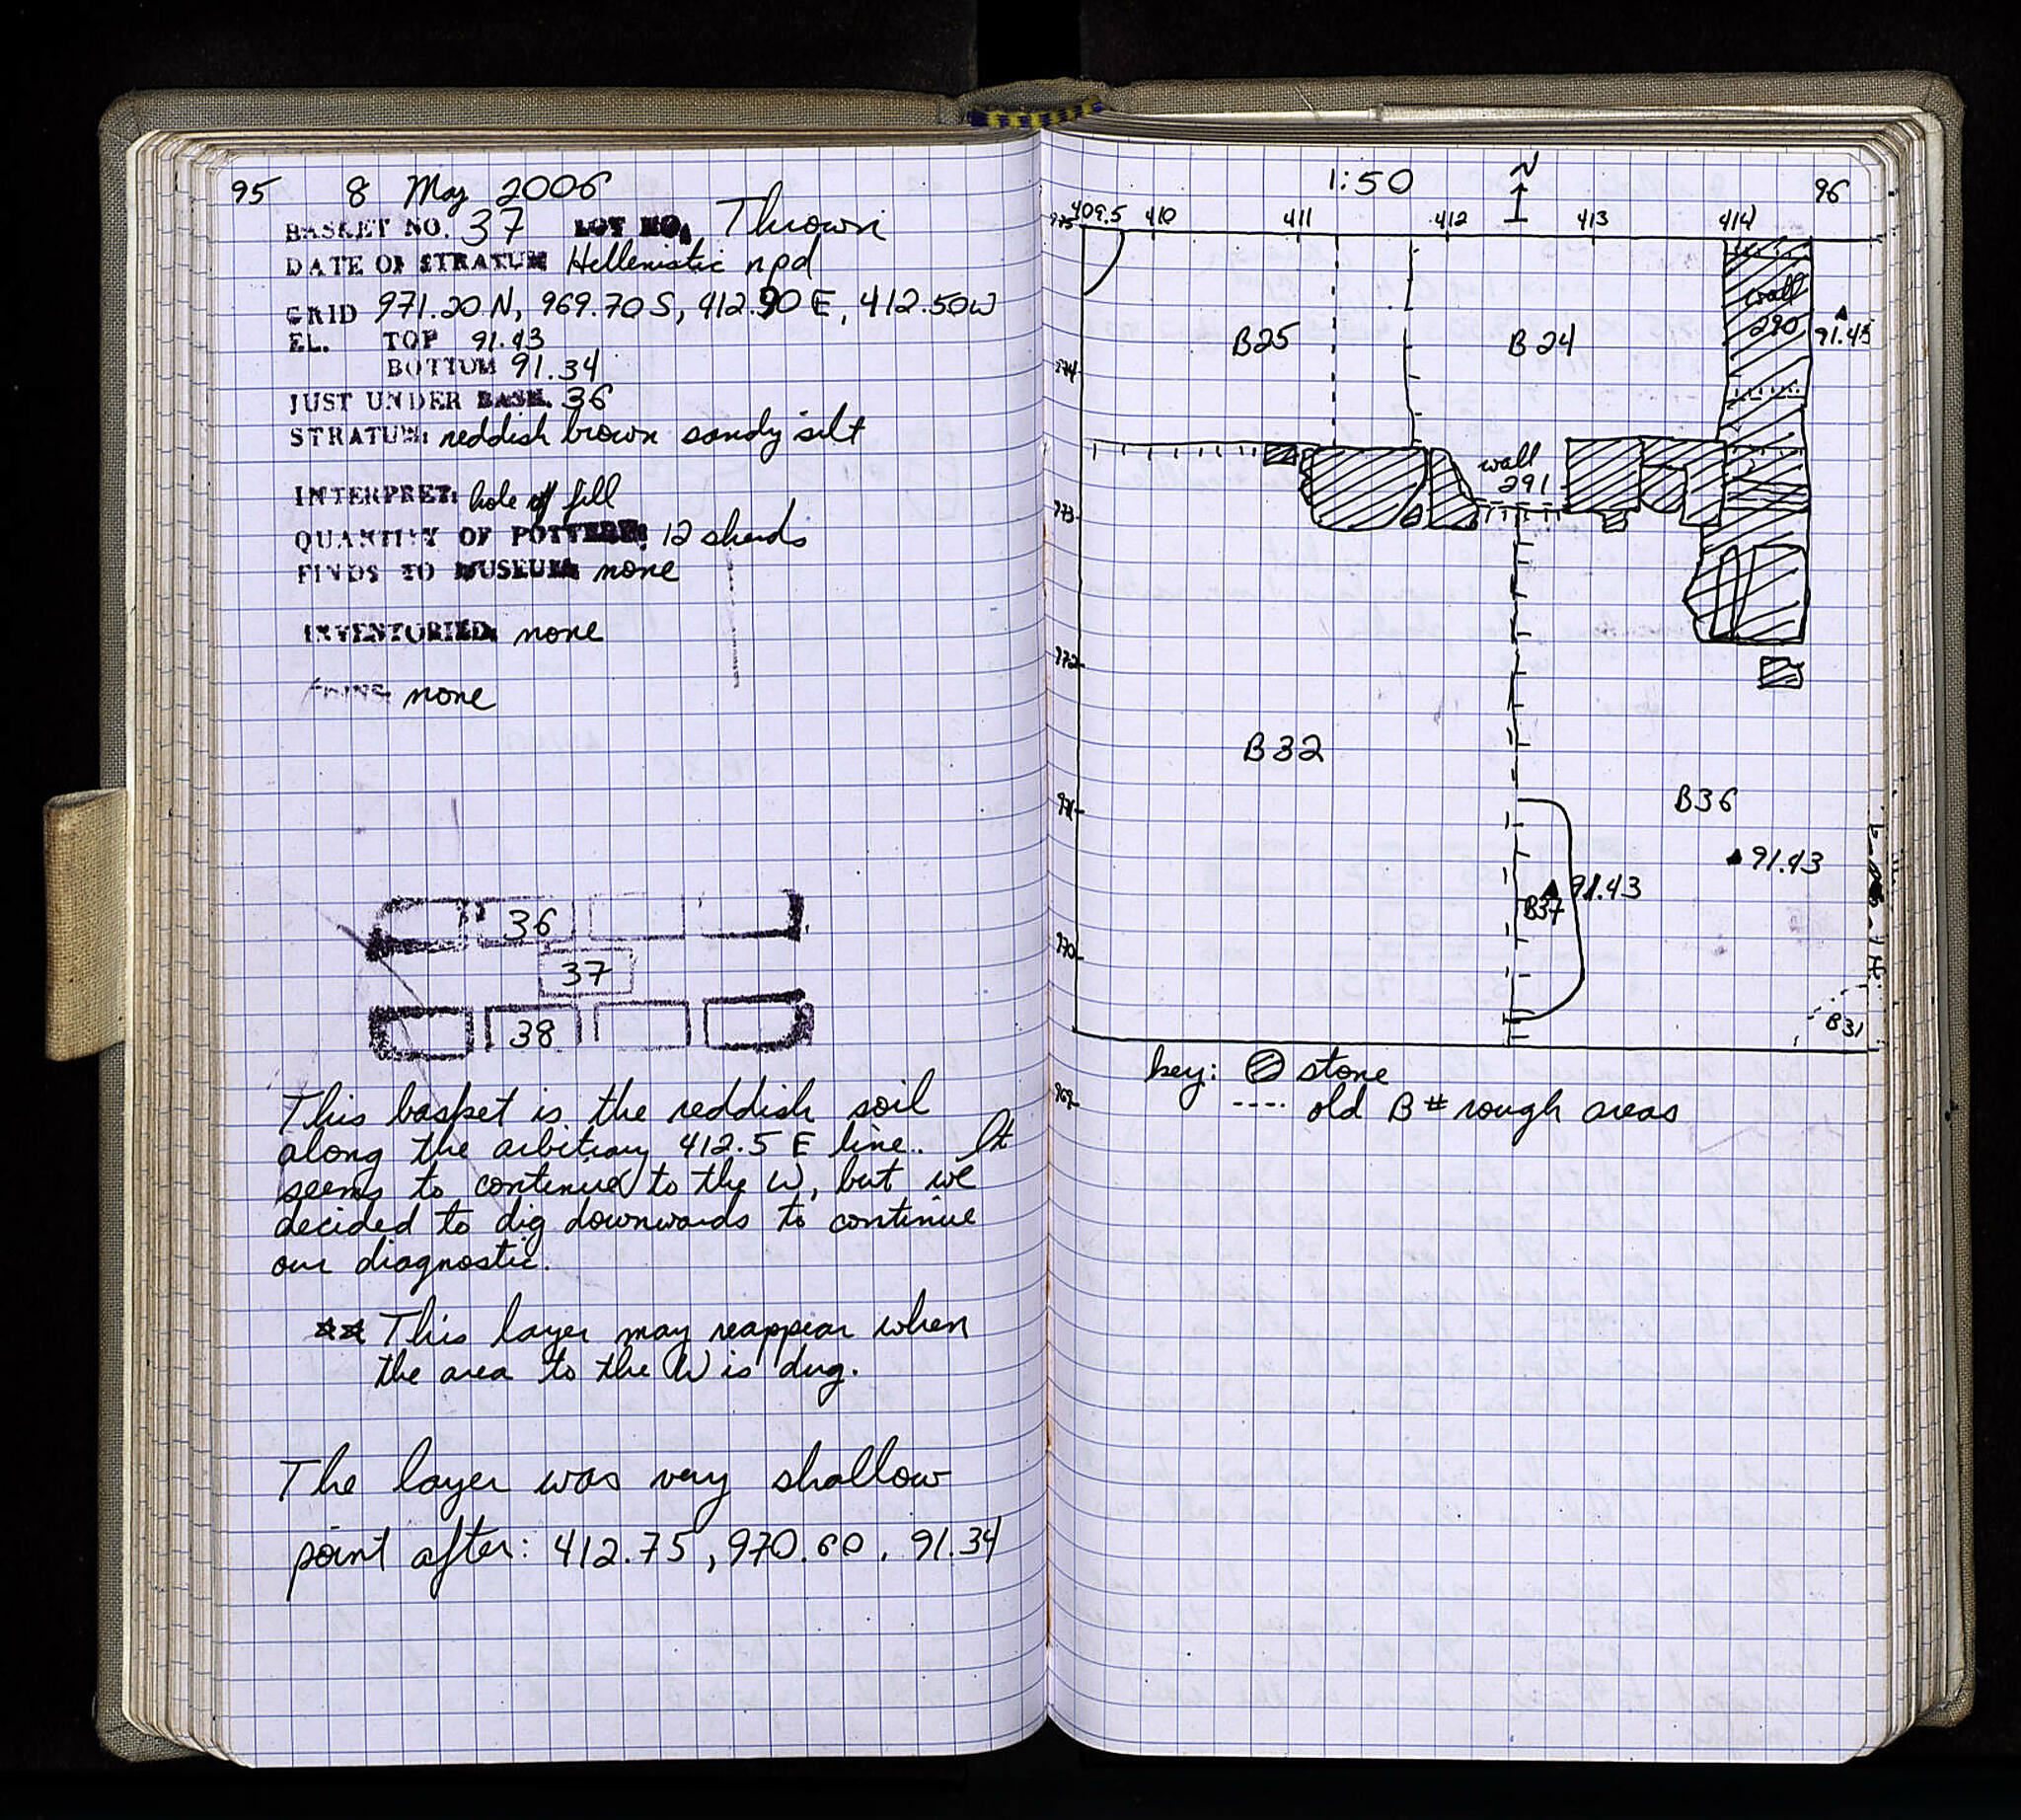 95 8 May 2006
BASKET NO. 37 LOT NO. Thrown
DATE OF STRATUM Hellenistic npd
GRID 971.20 N, 969.70 S, 412.90 E, 412.50 W
EL. TOP 91.43
BOTTOM 91.34
JUST UNDER BASK. 36
STRATUM: reddish brown sandy silt
INTERPRET: hole of fill
QUANTITY OF POTTERY: 12 sherds
FINDS TO MUSEUM: none
INVENTORIED: none
none
36
37
38
This basket is the reddish soil
along the arbitrary 412.5 E line.. It
seems to continued to the W, but we
decided to dig downwards to continue
our diagnostic.
** This layer may reappear when
the area to the W is dug.
The layer was very shallow
point after: 412.75, 970.60, 91.34
1:50 N 96
975 409.5 410 411 412 413 414
wall
290
91.45
B25 B24
974
wall
291
973
972
B32
B36
971
91.43
91.43
B37
970
B31
key: stone
969
---- old B# rough areas